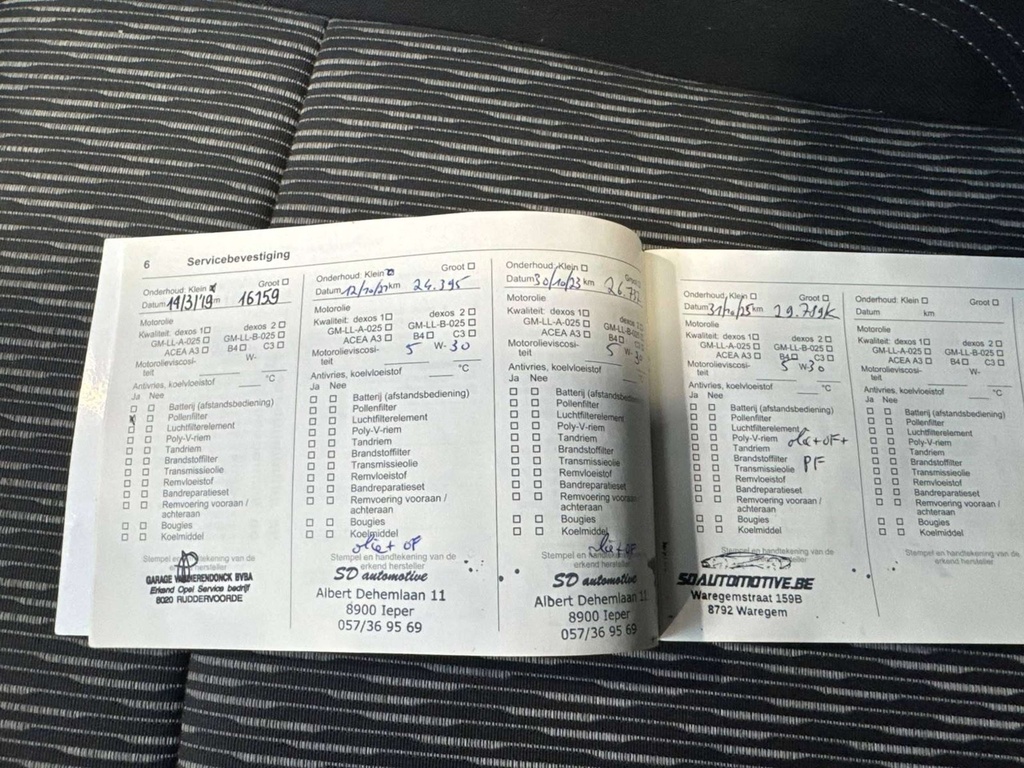 6 Servicebevestiging
Onderhoud: Klein ☒ Groot ☐
Datum 19/3/19 km 16159
Motorolie
Kwaliteit: dexos 1 ☐ dexos 2 ☐
GM-LL-A-025 ☐ GM-LL-B-025 ☐
ACEA A3 ☐ B4 ☐ C3 ☐
Motorolieviscosi- W-
teit
Antivries, koelvloeistof ____ °C
Ja Nee
☐ ☐ Batterij (afstandsbediening)
☒ ☐ Pollenfilter
☐ ☐ Luchtfilterelement
☐ ☐ Poly-V-riem
☐ ☐ Tandriem
☐ ☐ Brandstoffilter
☐ ☐ Transmissieolie
☐ ☐ Remvloeistof
☐ ☐ Bandreparatieset
☐ ☐ Remvoering vooraan /
achteraan
☐ ☐ Bougies
☐ ☐ Koelmiddel
Stempel en handtekening van de
erkend hersteller
GARAGE
BVBA
Erkend Opel Service bedrijf
8020 RUDDERVOORDE
Onderhoud: Klein ☒ Groot ☐
Datum 12/10/ km 24.395
Motorolie
Kwaliteit: dexos 1 ☐ dexos 2 ☐
GM-LL-A-025 ☐ GM-LL-B-025 ☐
ACEA A3 ☐ B4 ☐ C3 ☐
Motorolieviscosi- 5 W- 30
teit
Antivries, koelvloeistof ____ °C
Ja Nee
☐ ☐ Batterij (afstandsbediening)
☐ ☐ Pollenfilter
☐ ☐ Luchtfilterelement
☐ ☐ Poly-V-riem
☐ ☐ Tandriem
☐ ☐ Brandstoffilter
☐ ☐ Transmissieolie
☐ ☐ Remvloeistof
☐ ☐ Bandreparatieset
☐ ☐ Remvoering vooraan /
achteraan
☐ ☐ Bougies
☐ ☐ Koelmiddel
olie + OF
Stempel en handtekening van de
erkend hersteller
SD automotive
Albert Dehemlaan 11
8900 Ieper
057/36 95 69
Onderhoud: Klein ☐ Groot ☐
Datum 30/10/23 km
Motorolie
Kwaliteit: dexos 1 ☐ dexos 2 ☐
GM-LL-A-025 ☐ GM-LL-B-025 ☐
ACEA A3 ☐ B4 ☐ C3 ☐
Motorolieviscosi- 5 W- 30
teit
Antivries, koelvloeistof ____
Ja Nee
☐ ☐ Batterij (afstandsbediening)
☐ ☐ Pollenfilter
☐ ☐ Luchtfilterelement
☐ ☐ Poly-V-riem
☐ ☐ Tandriem
☐ ☐ Brandstoffilter
☐ ☐ Transmissieolie
☐ ☐ Remvloeistof
☐ ☐ Bandreparatieset
☐ ☐ Remvoering vooraan /
achteraan
☐ ☐ Bougies
☐ ☐ Koelmiddel
olie + OF
Stempel en handtekening van de
erkend hersteller
SD automotive
Albert Dehemlaan 11
8900 Ieper
057/36 95 69
Onderhoud: Klein ☐ Groot ☐
Datum 31/10/25 km
Motorolie
Kwaliteit: dexos 1 ☐ dexos 2 ☐
GM-LL-A-025 ☐ GM-LL-B-025 ☐
ACEA A3 ☐ B4 ☐ C3 ☐
Motorolieviscosi- 5 W 30
teit
Antivries, koelvloeistof ____ °C
Ja Nee
☐ ☐ Batterij (afstandsbediening)
☐ ☐ Pollenfilter
☐ ☐ Luchtfilterelement
☐ ☐ Poly-V-riem olie + OF +
☐ ☐ Tandriem
☐ ☐ Brandstoffilter PF
☐ ☐ Transmissieolie
☐ ☐ Remvloeistof
☐ ☐ Bandreparatieset
☐ ☐ Remvoering vooraan /
achteraan
☐ ☐ Bougies
☐ ☐ Koelmiddel
Stempel en handtekening van de
erkend hersteller
SDAUTOMOTIVE.BE
Waregemstraat 159B
8792 Waregem
Onderhoud: Klein ☐ Groot ☐
Datum km
Motorolie
Kwaliteit: dexos 1 ☐ dexos 2 ☐
GM-LL-A-025 ☐ GM-LL-B-025 ☐
ACEA A3 ☐ B4 ☐ C3 ☐
Motorolieviscosi- W-
teit
Antivries, koelvloeistof ____ °C
Ja Nee
☐ ☐ Batterij (afstandsbediening)
☐ ☐ Pollenfilter
☐ ☐ Luchtfilterelement
☐ ☐ Poly-V-riem
☐ ☐ Tandriem
☐ ☐ Brandstoffilter
☐ ☐ Transmissieolie
☐ ☐ Remvloeistof
☐ ☐ Bandreparatieset
☐ ☐ Remvoering vooraan /
achteraan
☐ ☐ Bougies
☐ ☐ Koelmiddel
Stempel en handtekening van de
erkend hersteller